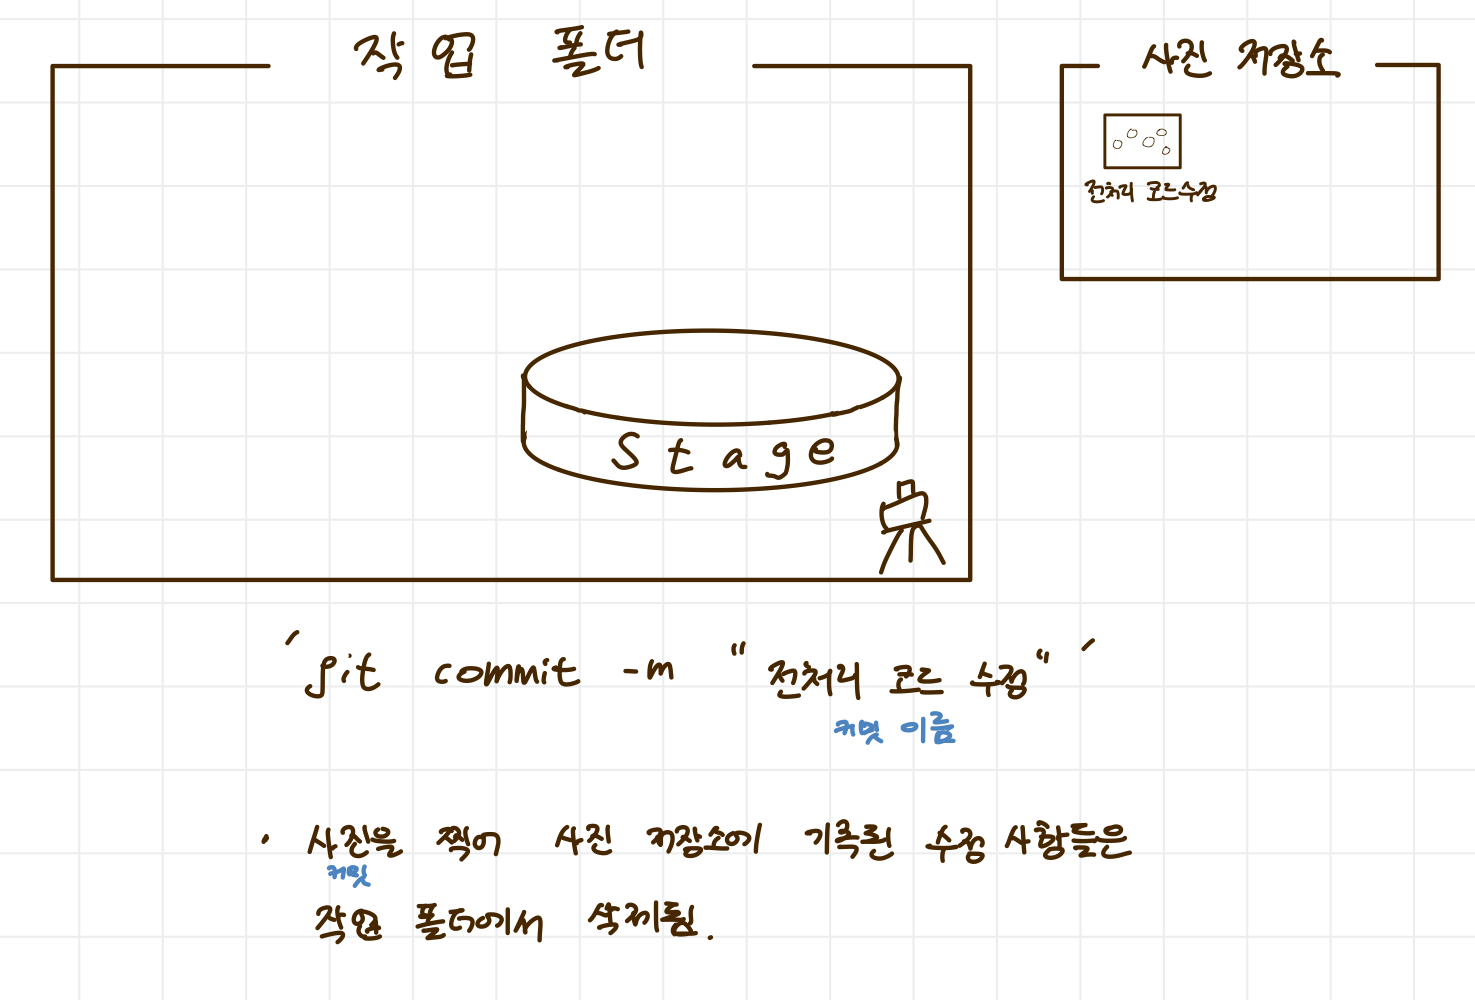 작업 폴더
사진 저장소
전처리 코드수정
Stage
'git commit -m "전처리 코드 수정"'
커밋 이름
· 사진을 찍어 사진 저장소에 기록된 수정 사항들은
커밋
작업 폴더에서 삭제됨.